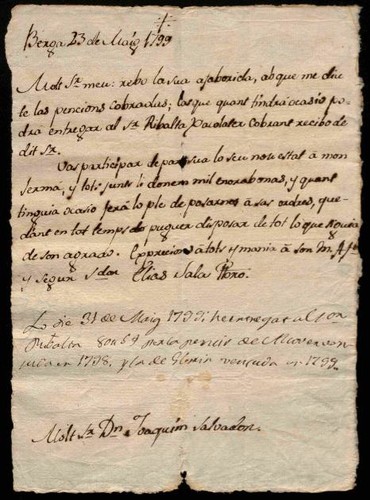 Berga 23 de Maig 1799
Molt Sr meu: rebo la sua afaborida, ab que me diu
te las pencions Cobradas; las que quant tindra ocasio po
dra entregar al Sr Ribalta Paolater Cobrant recibo de
dit Sr.
Vas participar de part sua lo seu nou estat â mon
Germá, y tots junts li donem mil enorabonas, y quant
tinguia ocasio ferá lo ple de posarnos â sas ordres, que
dant en tot temps de puguer disposar de tot lo que sequia
de son agrado. Exprecions â tots y mania â son
y segur Elias Sala
Lo die 31 de Maig 1799: he entregat al Sor
Ribalta per la pencio de
en 1798, y la de vençuda en 1799.
Molt Sr Dn Joaquim Salvador.